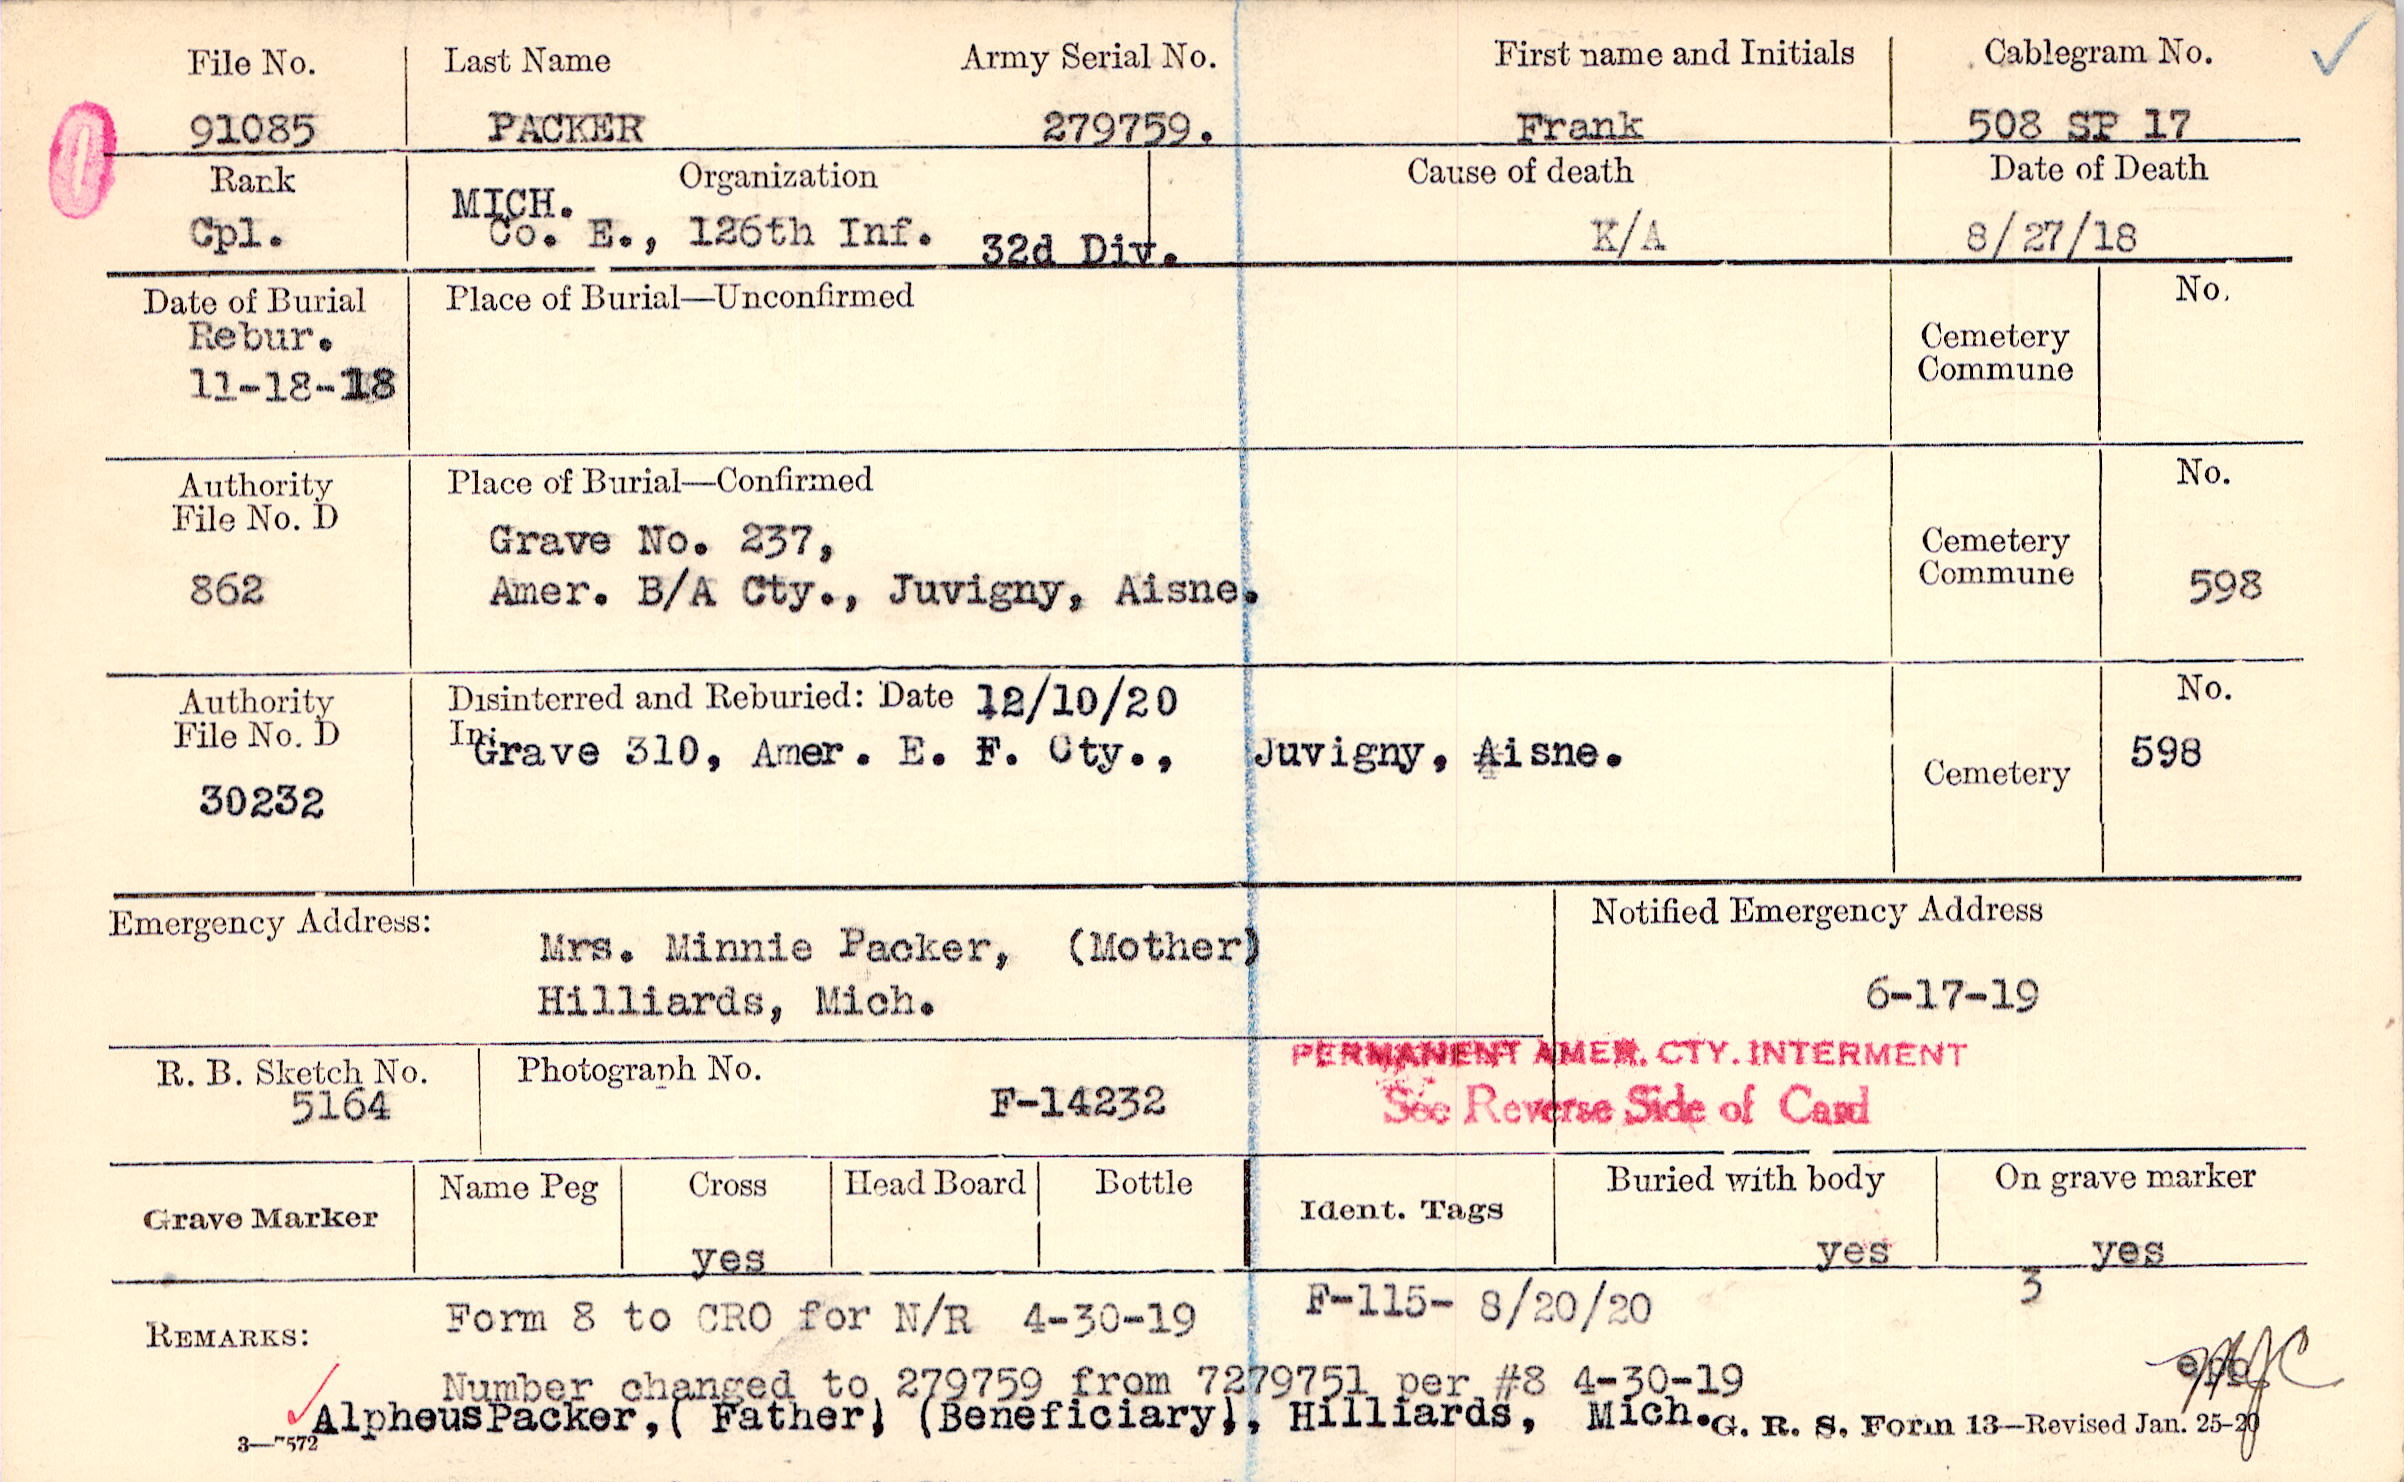 File No. Last Name Army Serial No. First name and Initials Cablegram No.
91085 PACKER 279759. Frank 508 SP 17
Rank Organization Cause of death Date of Death
MICH.
Cpl. Co. E., 126th Inf. 32d Div. K/A 8/27/18
Date of Burial Place of Burial—Unconfirmed No.
Rebur. Cemetery
11-18-18 Commune
Authority Place of Burial—Confirmed No.
File No. D
Grave No. 237, Cemetery
862 Amer. B/A Cty., Juvigny, Aisne. Commune 598
Authority Disinterred and Reburied: Date 12/10/20 No.
File No. D In:
Grave 310, Amer. E. F. Cty., Juvigny, Aisne. Cemetery 598
30232
Emergency Address: Notified Emergency Address
Mrs. Minnie Packer, (Mother)
Hilliards, Mich. 6-17-19
PERMANENT AMER. CTY. INTERMENT
R. B. Sketch No. Photograph No.
5164 F-14232 See Reverse Side of Card
Grave Marker Name Peg Cross Head Board Bottle Ident. Tags Buried with body On grave marker
yes yes yes
3
REMARKS: Form 8 to CRO for N/R 4-30-19 F-115- 8/20/20
Number changed to 279759 from 7279751 per #8 4-30-19
Alpheus Packer, ( Father) (Beneficiary), Hilliards, Mich.
3—7572 G. R. S. Form 13—Revised Jan. 25-20